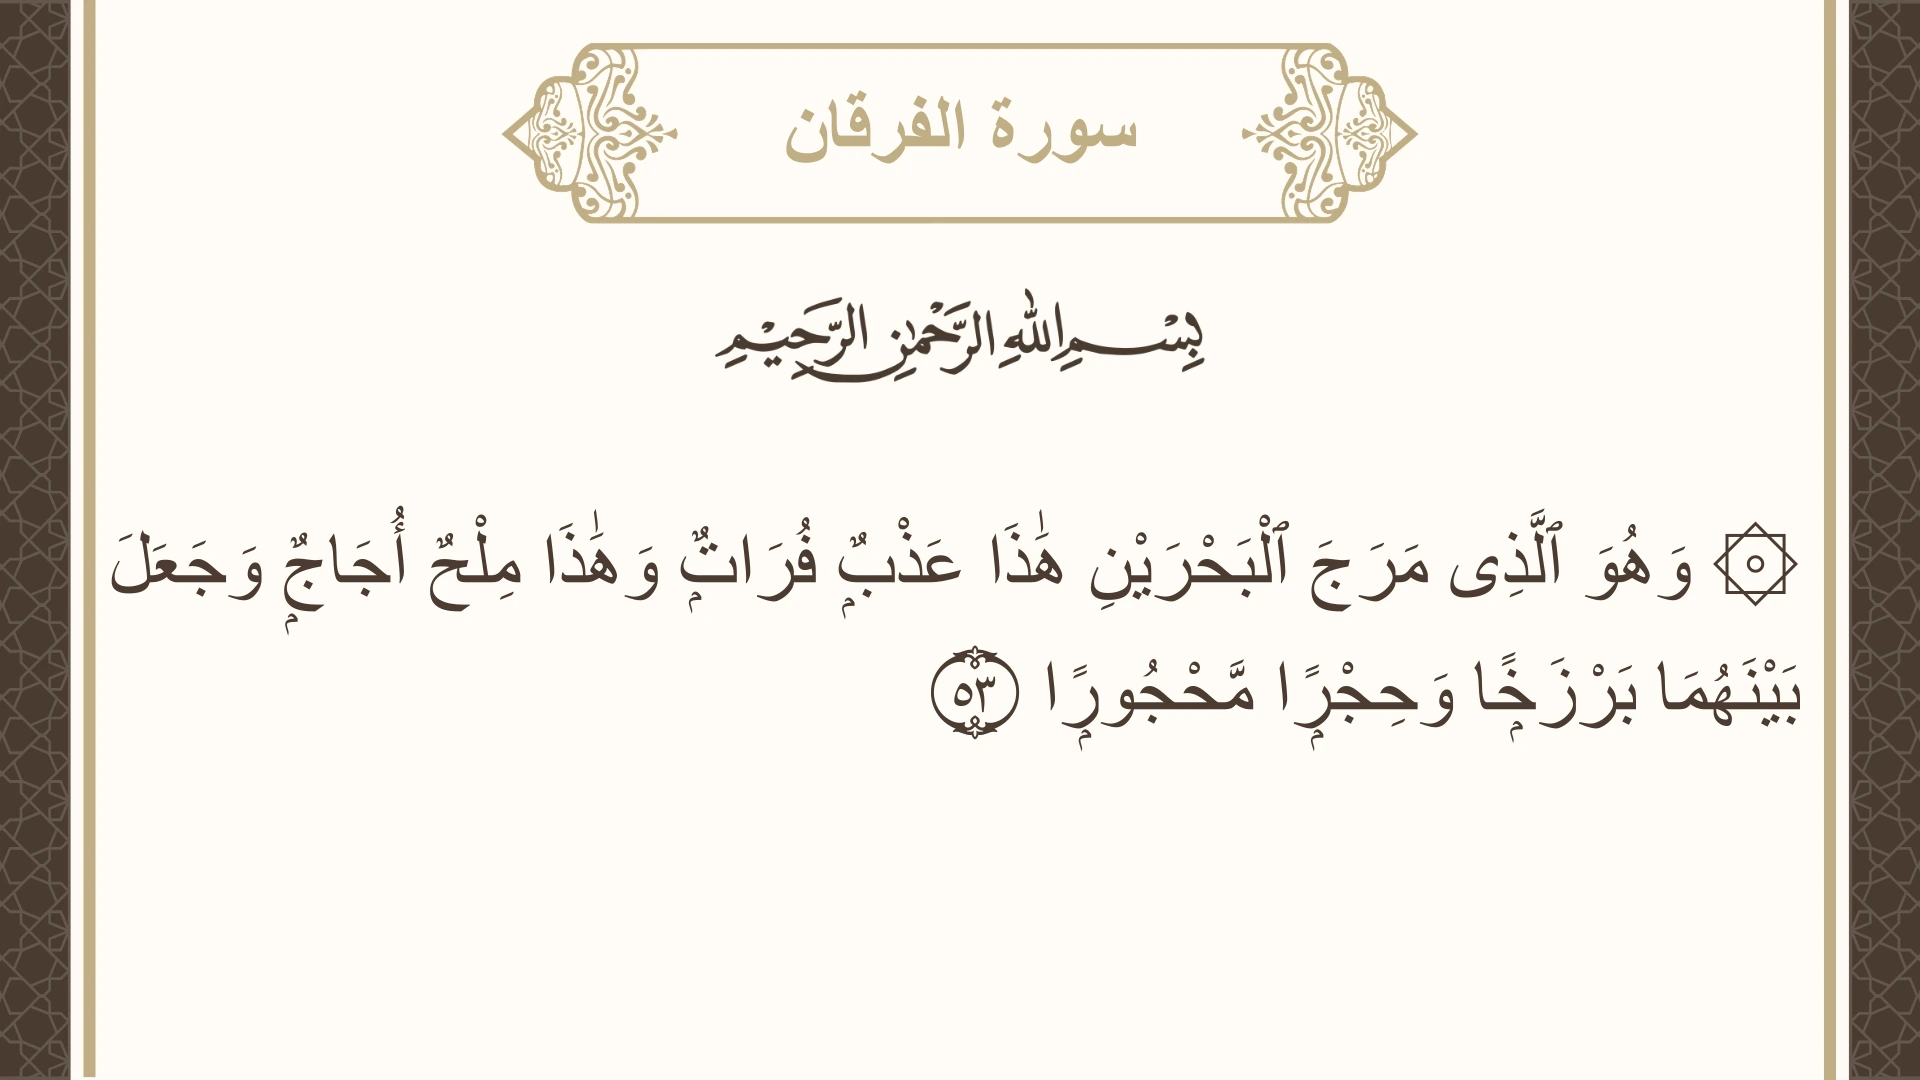 سورة الفرقان
بِسْمِ اللهِ الرَّحْمٰنِ الرَّحِيْمِ
۞ وَهُوَ ٱلَّذِى مَرَجَ ٱلْبَحْرَيْنِ هَٰذَا عَذْبٌۭ فُرَاتٌۭ وَهَٰذَا مِلْحٌ أُجَاجٌۭ وَجَعَلَ
بَيْنَهُمَا بَرْزَخًۭا وَحِجْرًۭا مَّحْجُورًۭا ٥٣